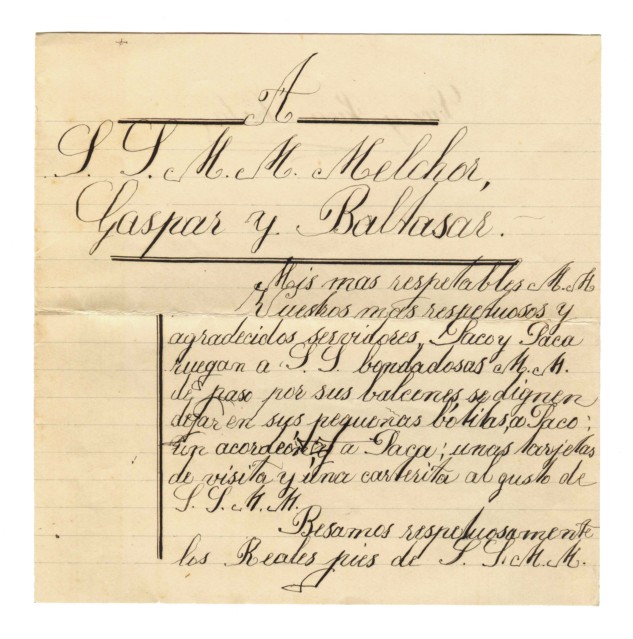 A
S. S. M. M. Melchor,
Gaspar y Baltasar.
Mis mas respetables M.M
Vuestros mas respetuosos y
agradecidos servidores, Paco y Paca
ruegan a S. S. bondadosas M. M.
de paso por sus balcones se dignen
dejar en sus pequeñas botitas, a Paco;
un acordeón y a Paca; unas tarjetas
de visita y una carterita al gusto de
S. S. M. M.
Besamos respetuosamente
los Reales pies de S. S. M. M.